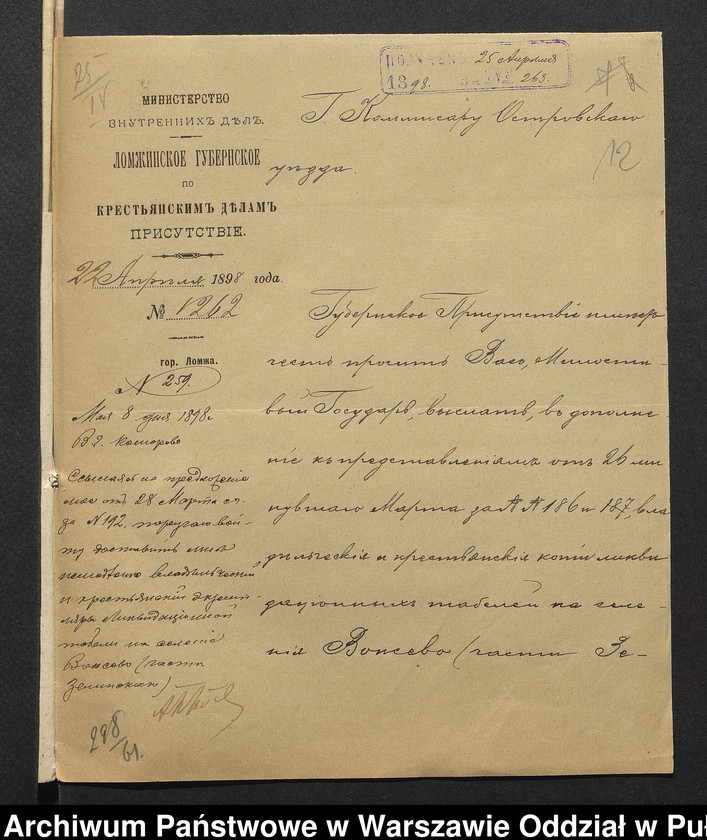 25
IV
ПОЛУЧЕНО 25 Апреля
1898. ЗА № 263.
12
МИНИСТЕРСТВО
ВНУТРЕННИХЪ ДѢЛЪ.
ЛОМЖИНСКОЕ ГУБЕРНСКОЕ
ПО
КРЕСТЬЯНСКИМЪ ДѢЛАМЪ
ПРИСУТСТВІЕ.
22 Апрѣля 1898 года.
№ 1262
гор. Ломжа.
Г. Коммисару Островскаго
уѣзда.
Губернское Присутствіе имѣетъ
честь проситъ Васъ, Милости-
вый Государь, выслать, въ дополне-
ніе къ представленіямъ отъ 26 ми
нувшаго Марта за №№ 186 и 187, вла
дѣльческія и крестьянскія копіи ликви
даціонныхъ табелей на селе-
нія Вонсево (части Зе-
N 259.
Мая 8 дня 1898 г.
В г.
Ссылаясь на предложеніе
мое отъ 28 Марта се. го
да N 192, поручаю вой-
ту доставить мнѣ
немедленно владѣльческій
и крестьянскій экзем-
пляры Ликвидаціонной
табели на селеніе
Вонсево (часть
298
61.
Archiwum Państwowe w Warszawie Oddział w Pu